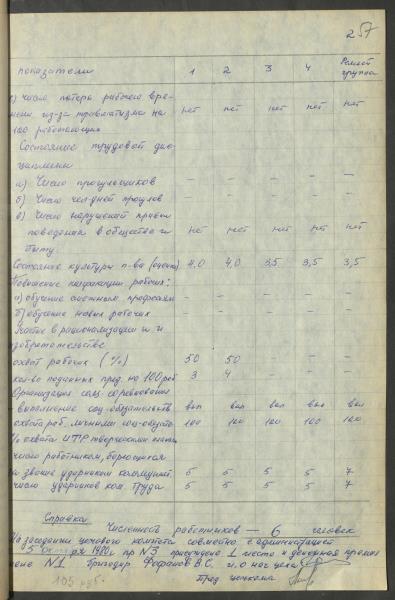 257
показатели 1 2 3 4 Ремонт группа
с) число потерь рабочего вре-
мени из-за травматизма на нет нет нет нет нет
100 работающих
Состояние трудовой дис-
циплины
а) Число прогульщиков – – – – –
б) Число чел-дней прогулов – – – – –
в) Число нарушений правил
поведения в обществе и нет нет нет нет нет
быту.
Состояние культуры п-ва (оценка) 4,0 4,0 3,5 3,5 3,5
Повышение квалификации рабочих:
а) обучение смежным профессиям – – – – –
б) обучение новых рабочих – – – – –
Участие в рационализации и и
изобретательстве
охват рабочих (%) 50 50 – – –
кол-во поданных пред. на 100 раб 3 4 – – –
Организация соц. соревнования
выполнение соц-обязательств вып вып вып вып вып
охват раб. личными соц-обязат. 100 100 100 100 100
% охвата ИТР творческими планами
число работников, борющихся
за звание ударников коммунист. 5 5 5 5 7
число ударников ком труда 5 5 5 5 7
Справка
Численность работников — 6 человек
На заседании цехового комитета совместно с администрацией
5 октября 1980г пр N3 присуждено 1 место и денежная премия
смене N1 Бригадир Фофанов В.С. и.о нач цеха
105 руб. Пред цехкома